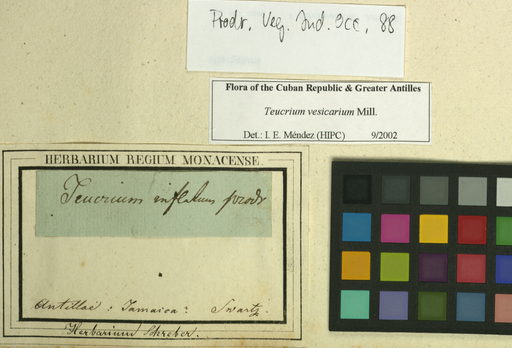 Prodr. Veg. Ind. Occ. 88
Flora of the Cuban Republic & Greater Antilles
Teucrium vesicarium Mill.
Det.: I. E. Méndez (HIPC) 9/2002
HERBARIUM REGIUM MONACENSE.
Teucrium inflatum prodr
Antillae : Jamaica : Swartz.
Herbarium Schreber.